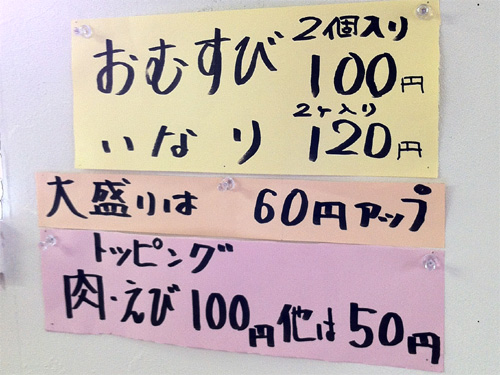 おむすび 2個入り 100円
いなり 2ヶ入り 120円
大盛りは 60円アップ
トッピング
肉・えび100円他は50円